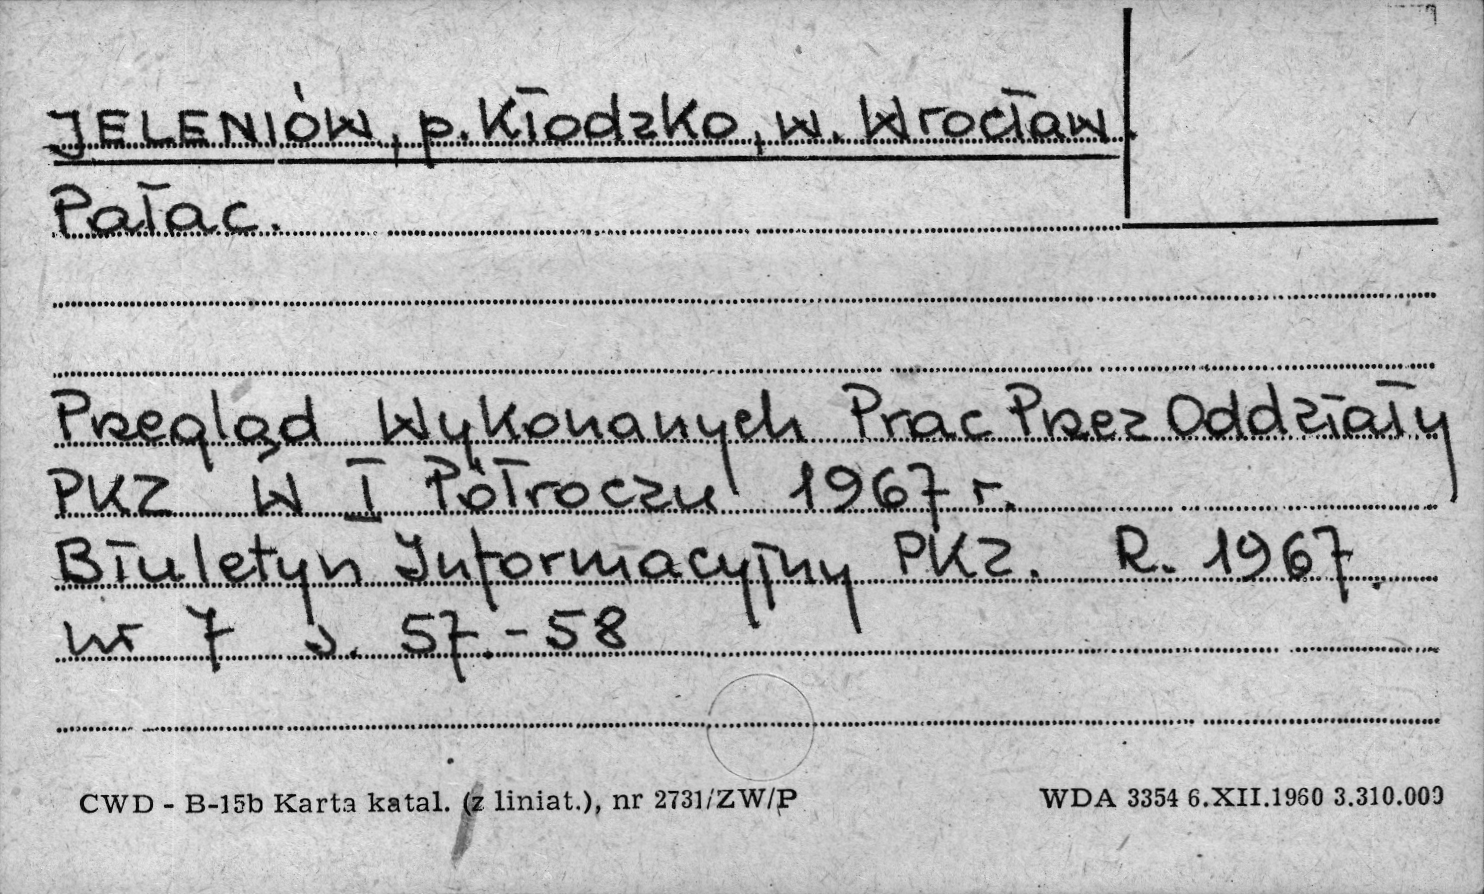 JELENIÓW, p. Kłodzko, w. Wrocław.
Pałac.
Przegląd Wykonanych Prac Przez Oddziały
PKZ W I Półroczu 1967 r.
Biuletyn Informacyjny PKZ. R. 1967.
nr 7 s. 57.-58
CWD - B-15b Karta katal. (z liniat.), nr 2731/ZW/P
WDA 3354 6.XII.1960 3.310.000